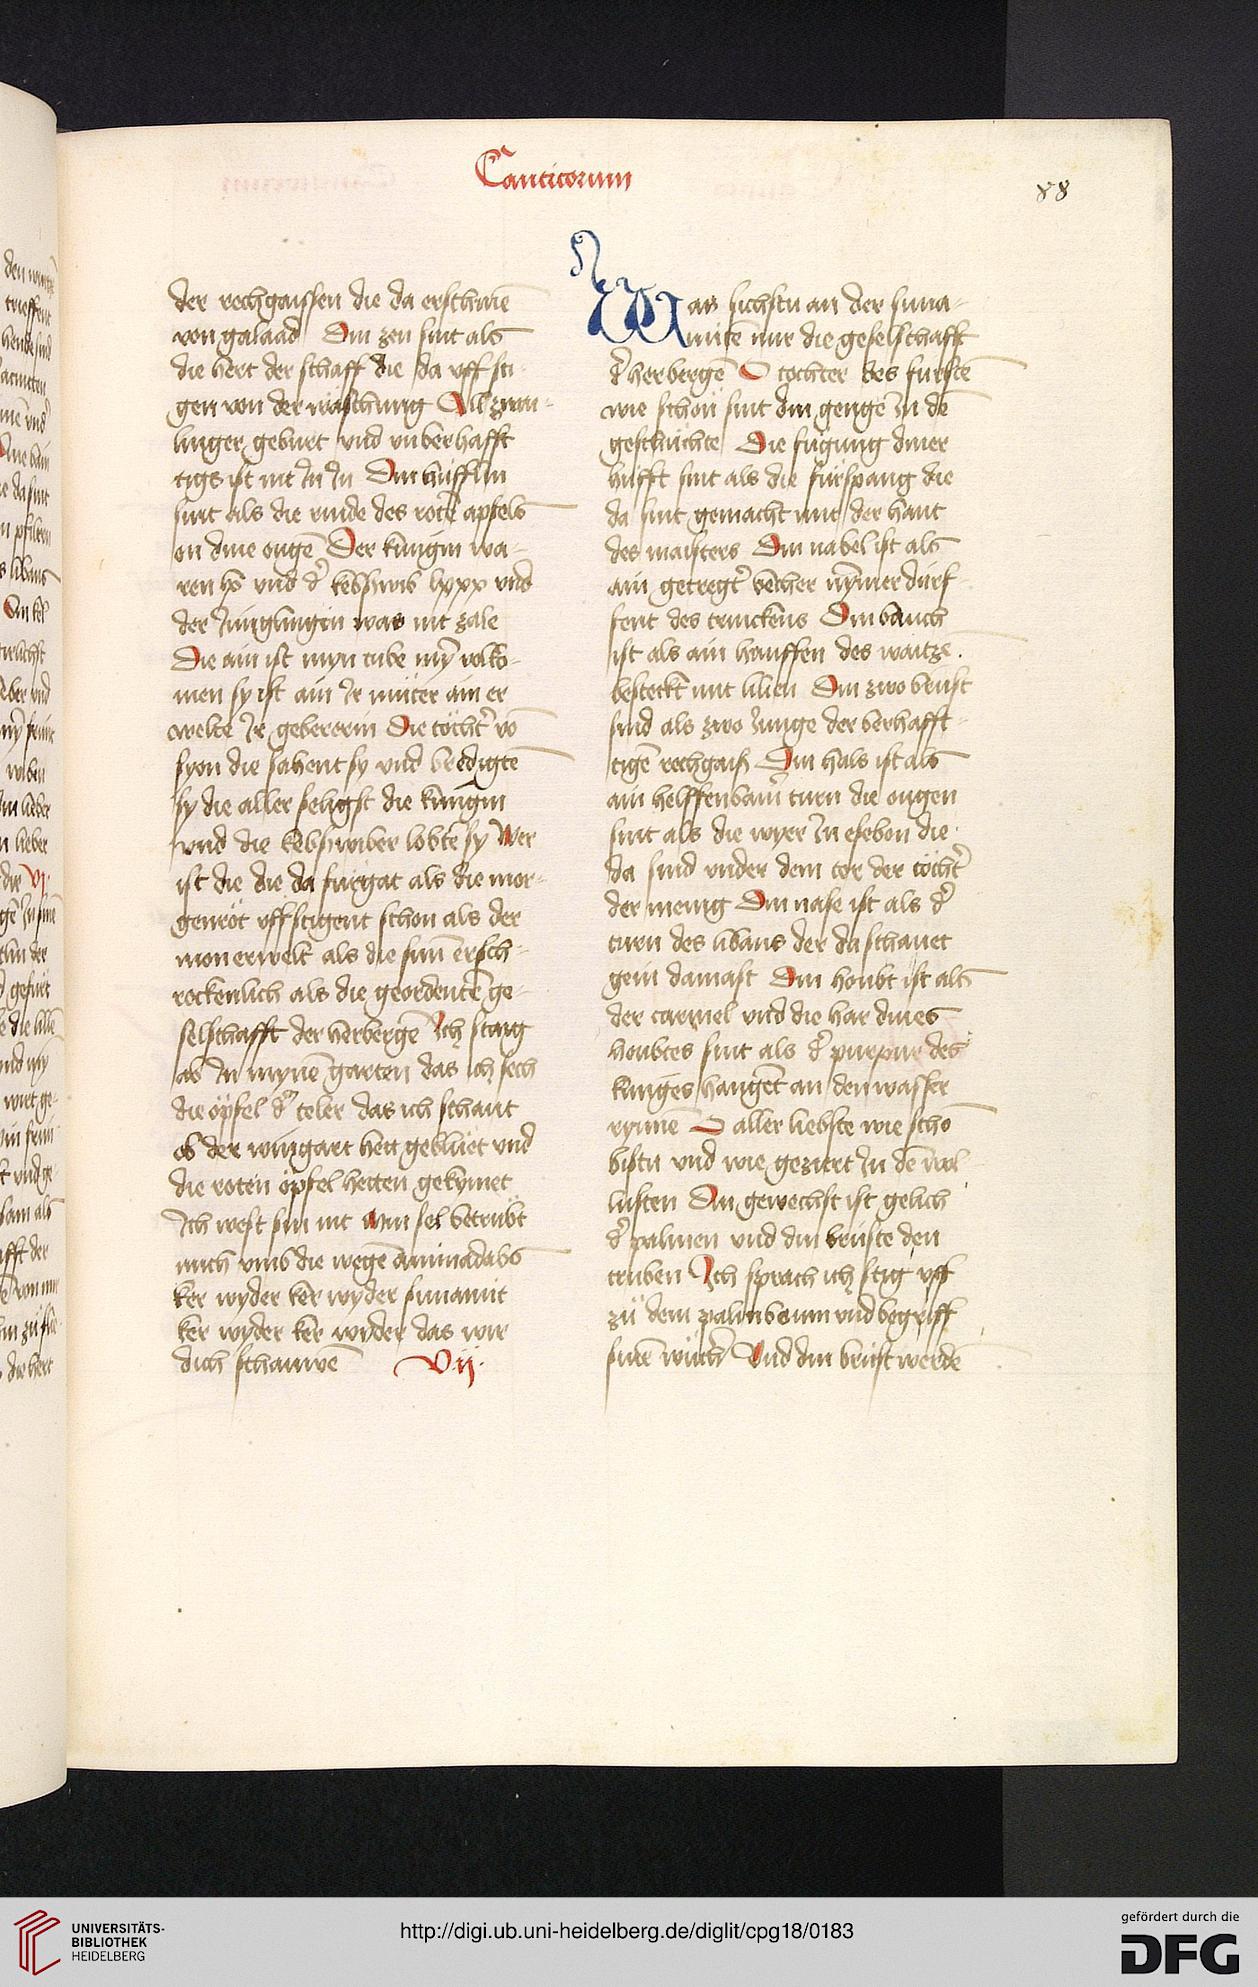 Canticorum
88
der rechgaissen die da erschinē
von galaad Din zen sint als
die hert der schaff die da vff sti-
gen von der wäschung All zwin-
linger geburt vnd vnberhafft
tigs ist nit In In Din hüfflin
sint als die rinde des rotē apfels
on dine ougē Der künigin wa-
ren lx vnd d' kebswib lxxx vnd
der Jünglingin was nit zale
Die ain ist myn tube mȳ volko-
men sy ist ain Ir müter ain er
welte Ir gebererin Die töcht' vō
syon die sahent sy vnd bredigtē
sy die aller seligst die künigin
vnd die kebswiber lobtē sy Wer
ist die die da fürgat als die mor-
genröt vffstigent schon als der
mon erwelt als die sun̄ ersch-
rockenlich als die geordentē ge-
selschafft der herbergē Ich staig
ab In mynē garten das ich sech
die öpfel d' teler das ich schaut
ob der wingart hett geblüet vnd
die roten öpfel hetten gekymet
Ich west sin nit Min sel betrübt
mich vmb die wegē aminadabs
ker wyder ker wyder sunamit
ker wyder ker wyder das wir
dich schauwē V ij.
Was sichstu an der suna-
mitē nur die geselschafft
d' herbergē O tochter des fürstē
wie schön sint din gengē In dē
geschüchte Die fügung diner
hüfft sint als die fürspang die
da sint gemacht mit der hant
des maisters Din nabel ist als
ain getregt' becher nȳmer dürf-
fent des trinckens Din bauch
ist als ain hauffen des waitzē.
besteckt mit lilien Din zwo brüst
sind als zwo Junge der berhafft-
tigē rechgaiß Din hals ist als
ain helffenbain' turn die ougen
sint als die wyer In esebon die
da sind vnder dem tor der töcht'
der menig Din nase ist als d'
turn des libans der da schauet
gein damast Din houbt ist als
der carmel vnd die har dines
houbtes sint als d' purpur des
künges hangēt an den wasser
rynnē O aller liebste wie schō
bistu vnd wie gezieret In dē wol-
lusten Din gewechst ist gelich
d' palmen vnd din brüste den
truben Ich sprach ich stig vff
zü dem palmboum vnd begriff
sinē wüch' Vnd din brüst werdē
UNIVERSITÄTS-
BIBLIOTHEK
HEIDELBERG
http://digi.ub.uni-heidelberg.de/diglit/cpg18/0183
gefördert durch die
DFG